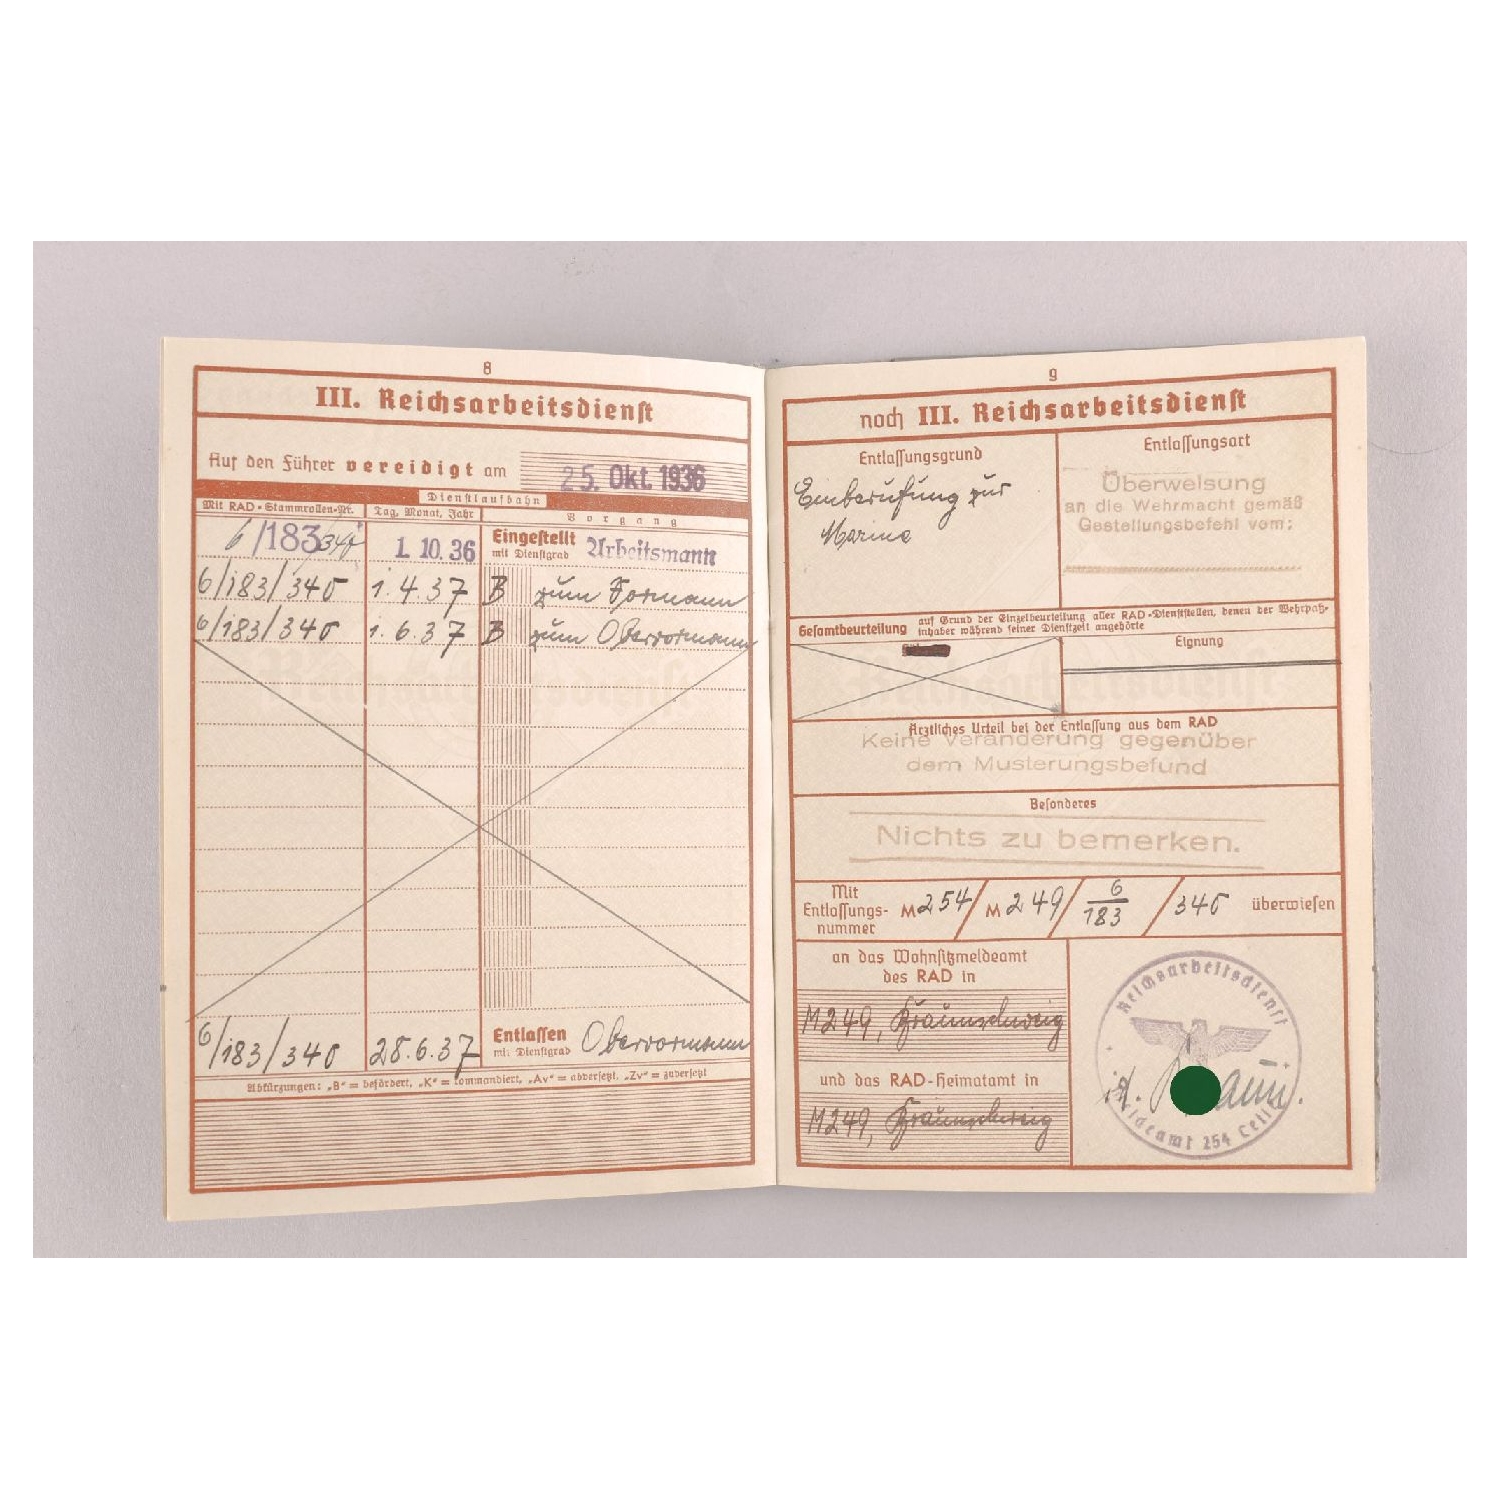 8
III. Reichsarbeitsdienst
Auf den Führer vereidigt am 25. Okt. 1936
Dienstlaufbahn
Mit RAD-Stammrollen-Nr. Tag, Monat, Jahr Vorgang
6/183/340 1. 10. 36 Eingestellt mit Dienstgrad Arbeitsmann
6/183/340 1.4.37 B zum Vormann
6/183/340 1.6.37 B zum Obervormann
6/183/340 28.6.37 Entlassen mit Dienstgrad Obervormann
Abkürzungen: „B“ = befördert, „K“ = kommandiert, „Av“ = abversetzt, „Zv“ = zuversetzt
9
noch III. Reichsarbeitsdienst
Entlassungsgrund
Einberufung zur
Marine
Entlassungsart
Überweisung
an die Wehrmacht gemäß
Gestellungsbefehl vom:
Gesamtbeurteilung auf Grund der Einzelbeurteilung aller RAD-Dienststellen, denen der Wehrpaß-
inhaber während seiner Dienstzeit angehörte
Eignung
Ärztliches Urteil bei der Entlassung aus dem RAD
Keine Veränderung gegenüber
dem Musterungsbefund
Besonderes
Nichts zu bemerken.
Mit
Entlassungs-
nummer
M 254 / M 249 / 6/183 / 340 überwiesen
an das Wohnsitzmeldeamt
des RAD in
M 249, Braunschweig
und das RAD-Heimatamt in
M 249, Braunschweig
Reichsarbeitsdienst
Meldeamt 254 Celle